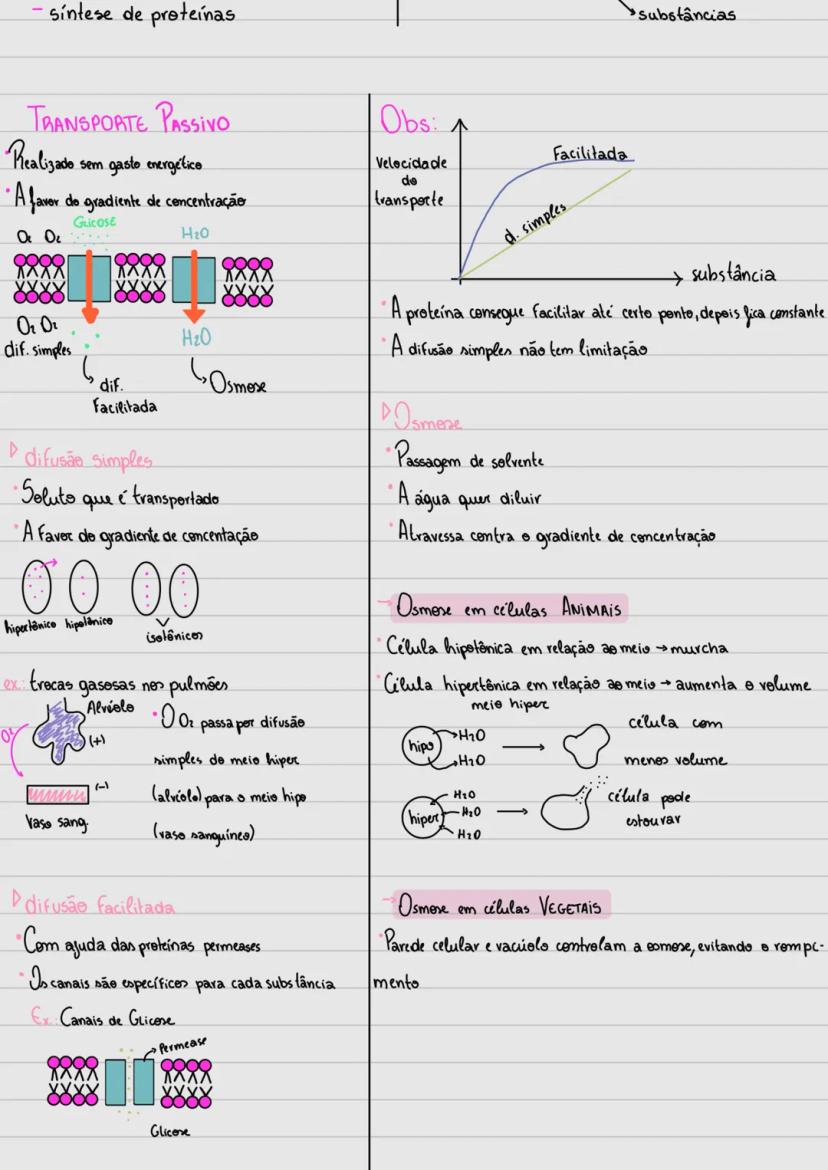 - síntese de proteínas
substâncias
TRANSPORTE PASSIVO
Realizado sem gasto energético
A favor do gradiente de concentração
Glicose
O₂ O₂
H₂O
O₂ O₂
H₂O
dif. simples
dif.
Facilitada
Osmose
difusão simples
Soluto que é transportado
A Favor do gradiente de concentação
hipertônico hipotônico
isotônicos
ex: trocas gasosas nos pulmões
Alvéolo
O₂
(+)
(-)
Vaso sang.
O O₂ passa por difusão
simples do meio hiper
(alvéolo) para o meio hipo
(vaso sanguíneo)
difusão Facilitada
Com ajuda das proteínas permeases
Os canais são específicos para cada substância
Ex: Canais de Glicose
Permease
Glicose
Obs:
Velocidade
do
transporte
Facilitada
d. simples
substância
A proteína consegue Facilitar até certo ponto, depois fica constante
A difusão simples não tem limitação
Osmose
Passagem de solvente
A água quer diluir
Atravessa contra o gradiente de concentração
Osmose em células ANIMAIS
Célula hipotônica em relação ao meio → murcha
Célula hipertônica em relação ao meio → aumenta o volume
meio hiper
hipo
H₂O
H₂O
célula com
menos volume
hiper
H₂O
H₂O
H₂O
célula pode
estourar
Osmose em células VEGETAIS
Parede celular e vacúolo controlam a osmose, evitando o rompi-
mento